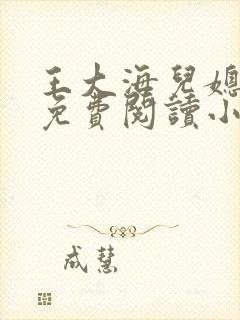 王大海兒媳
免費閱讀小
成慧